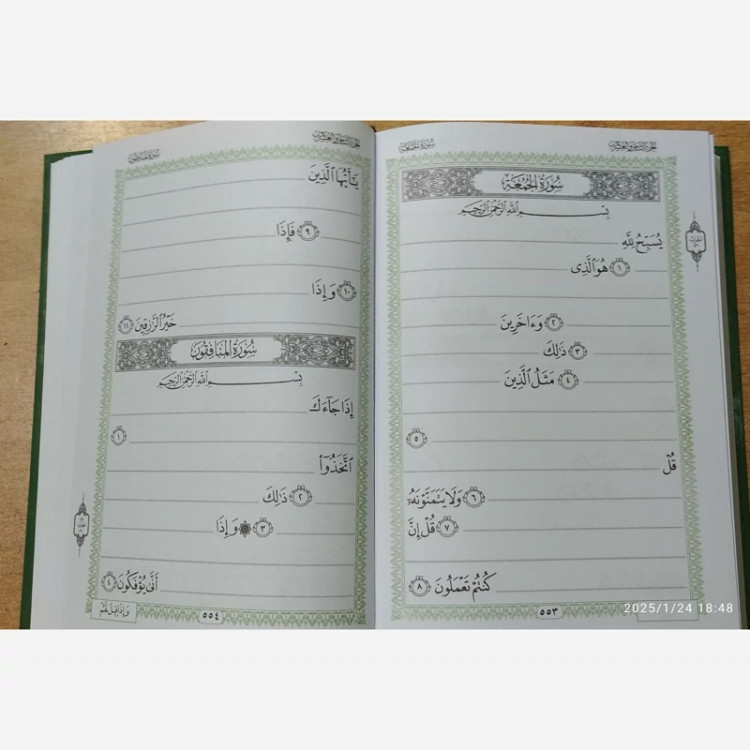 سُورَةُ الجُمُعَةِ
بِسْمِ اللَّهِ الرَّحْمَٰنِ الرَّحِيمِ
يُسَبِّحُ لِلَّهِ
١ هُوَ ٱلَّذِى
٢ وَءَاخَرِينَ
٣ ذَٰلِكَ
٤ مَثَلُ ٱلَّذِينَ
٥
قُلْ
٦ وَلَا يَتَمَنَّوْنَهُۥ
٧ قُلْ إِنَّ
كُنتُمْ تَعْمَلُونَ ٨
٥٥٣
2025/1/24 18:48
يَٰٓأَيُّهَا ٱلَّذِينَ
٩ فَإِذَا
١٠ وَإِذَا
خَيْرُ ٱلرَّٰزِقِينَ ١١
سُورَةُ المُنَافِقُونَ
بِسْمِ اللَّهِ الرَّحْمَٰنِ الرَّحِيمِ
إِذَا جَآءَكَ
١
ٱتَّخَذُوٓا۟
٢ ذَٰلِكَ
٣ ۞ وَإِذَا
أَنَّىٰ يُؤْفَكُونَ ٤
٥٥٤